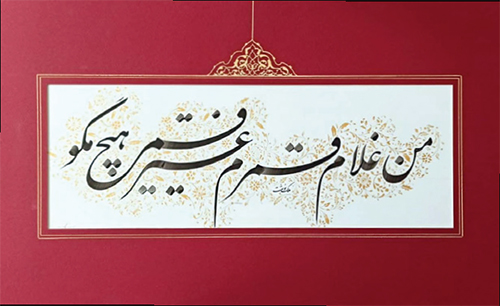 من غلام قمرم غیر قمر هیچ مگو